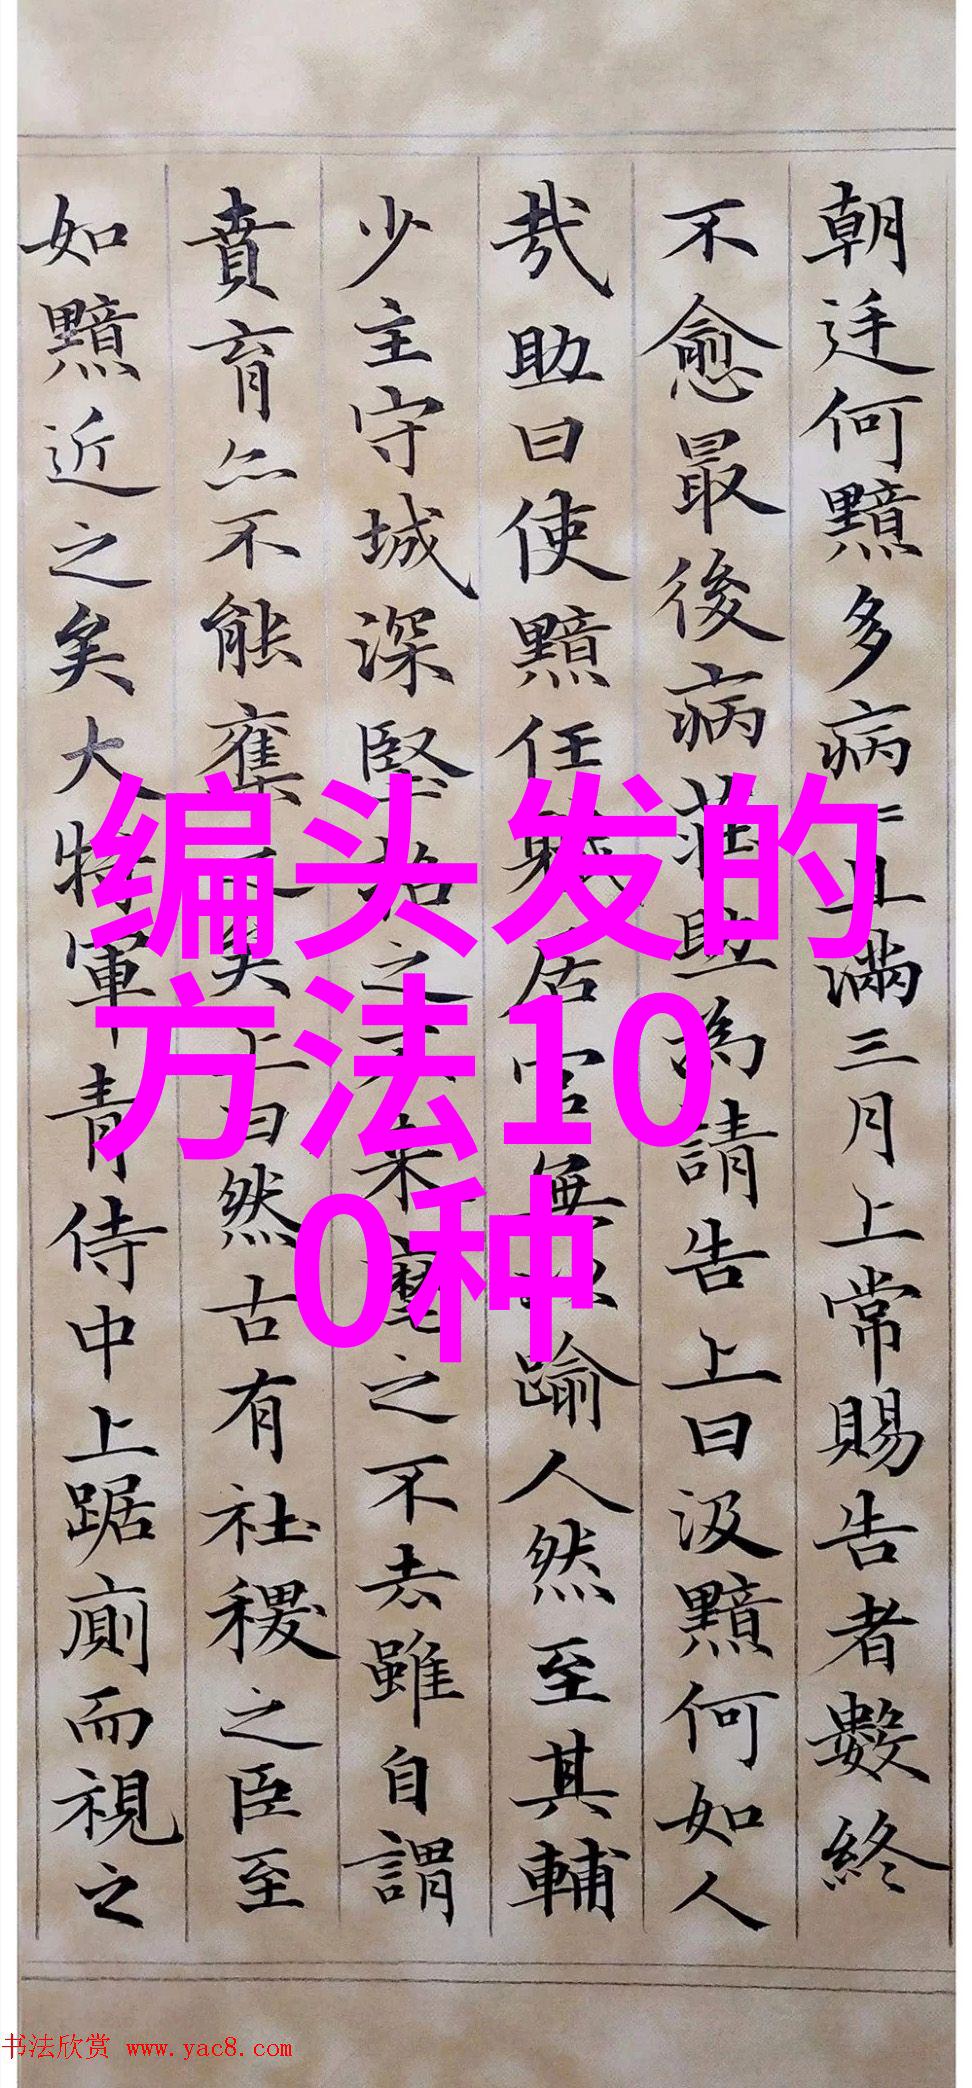 朝廷何黯多病病且滿三月上常賜告者數終
不愈最後病莊助為請告上曰汲黯何如人
哉助曰使黯任職居官無以踰人然至其輔
少主守城深堅招之不来麾之不去雖自謂
賁育亦不能奪之矣上曰然古有社稷之臣至
如黯近之矣大將軍青侍中上踞廁而視之
编头发的
方法10
0种
书法欣赏 www.yac8.com